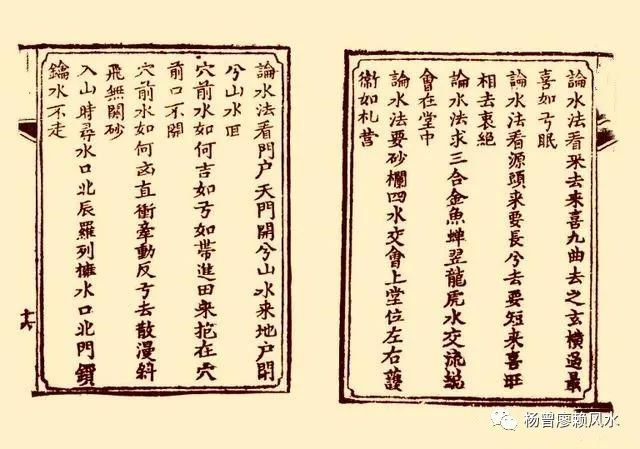 論水法看來去來喜九曲去之玄橫過最
喜如弓眠
論水法看源頭來要長兮去要短來喜旺
相去衰絕
論水法求三合金魚蟬翌龍虎水交流
會在堂中
論水法要砂欄四水交會上堂位左右護
衛如札營
論水法看門户天門開兮山水來地户閉
兮山水囬
穴前水如何吉如弓如帶進田來抱在穴
前口不開
穴前水如何凶直衝牽動反弓去散漫斜
飛無関砂
入山時尋水口北辰羅列擁水口北門鎖
鑰水不走
十六
杨曾廖赖风水